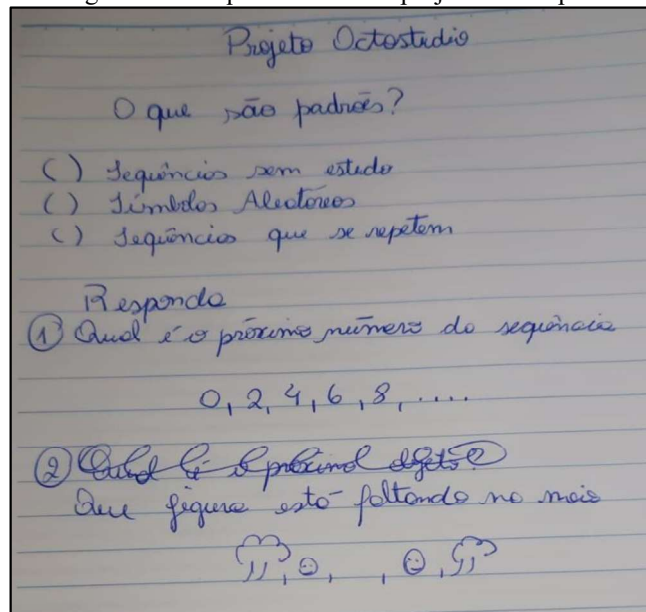 Projeto Octostudio
O que são padrões?
( ) Sequências sem estudo
( ) Símbolos Aleatóreos
( ) Sequências que se repetem
Responda
① Qual é o próximo número da sequência
0, 2, 4, 6, 8, ....
②
Que figura está faltando no meio